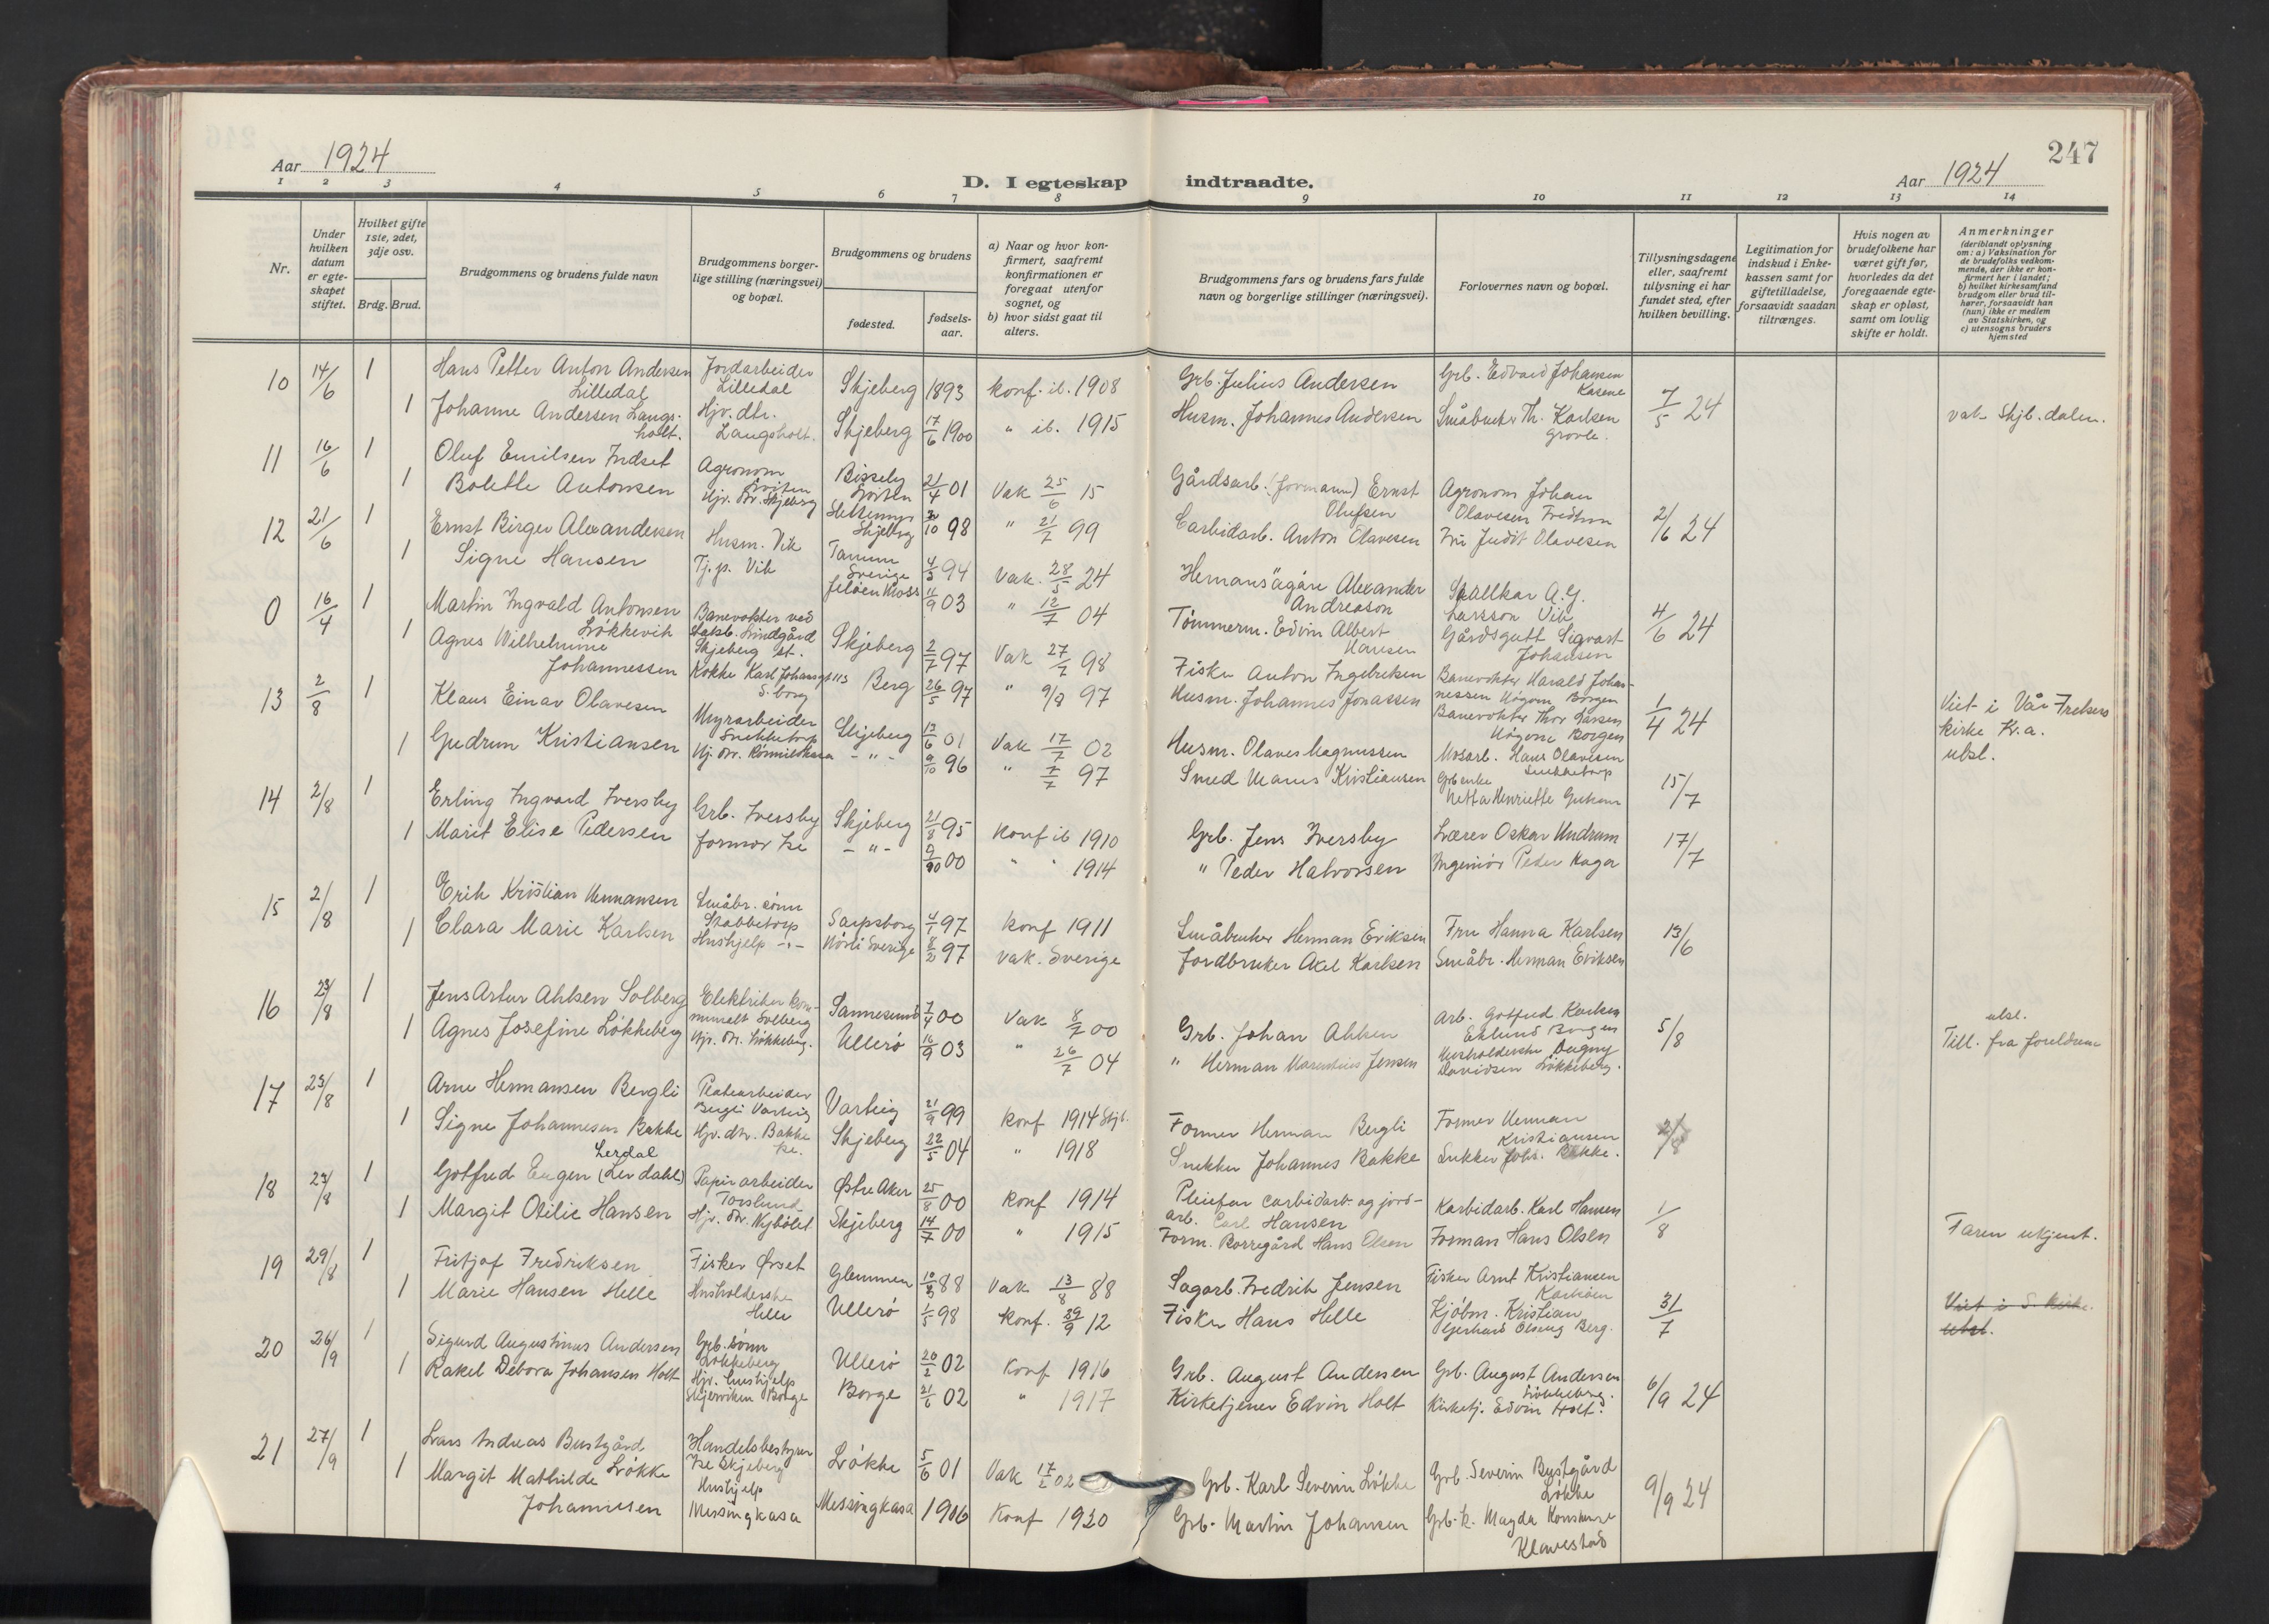 Aar 1924
D. I egteskap indtraadte.
Aar 1924
247
1 2 3 4 5 6 7 8 9 10 11 12 13 14
Nr.
Under hvilken datum er egteskapet stiftet.
Hvilket gifte 1ste, 2det, 3dje osv.
Brdg. Brud.
Brudgommens og brudens fulde navn
Brudgommens borgerlige stilling (næringsvei) og bopæl.
Brudgommens og brudens
fødested.
fødselsaar.
a) Naar og hvor konfirmert, saafremt konfirmationen er foregaat utenfor sognet, og
b) hvor sidst gaat til alters.
Brudgommens fars og brudens fars fulde navn og borgerlige stillinger (næringsvei).
Forlovernes navn og bopæl.
Tillysningsdagene eller, saafremt tillysning ei har fundet sted, efter hvilken bevilling.
Legitimation for indskud i Enkekassen samt for giftetilladelse, forsaavidt saadan tiltrænges.
Hvis nogen av brudefolkene har været gift før, hvorledes da det foregaaende egteskap er opløst, samt om lovlig skifte er holdt.
Anmerkninger
(deriblandt oplysning om: a) Vaksination for de brudefolks vedkommende, der ikke er konfirmert her i landet; b) hvilket kirkesamfund brudgom eller brud tilhører, forsaavidt han (hun) ikke er medlem av Statskirken, og c) utensogns bruders hjemsted
10 14/6 1 Hans Petter Anton Andersen Lilledal Jordarbeider Lilledal Skjeberg 1893 konf. ib. 1908 Grb. Julius Andersen Grb. Edvard Johansen 7/5 24
1 Johanne Andersen Langsholt. Hjv. dtr. Langsholt. Skjeberg 17/6 1900 " ib. 1915 Husm. Johannes Andersen Småbruker Th. Karlsen vak Skjb. dalen.
11 16/6 1 Oluf Emilsen Indset Agronom 21/4 01 Vak 25/6 15 Gårdsarb. (formann) Ernst Olufsen Agronom Johan Olavesen 2/6 24
1 Bolette Antonsen Hjv. dtr. Skjeberg Skjeberg 30/10 98 " 21/7 99 Carbidarb. Anton Olavesen Fru Judit Olavesen
12 21/6 1 Ernst Birger Alexandersen Husm. Vik Tanum Sverige 4/3 94 Vak. 28/5 24 Hemansägare Alexander Andreason A.G. Larsson Vik 4/6 24
1 Signe Hansen Tj.p. Vik Jeløen Moss 11/9 03 " 12/7 04 Tømmerm. Edvin Albert Hansen Gårdsgutt Sigvart Johansen
0 16/4 1 Martin Ingvald Antonsen Løkkevik Banevokter ved Skjeberg st. Skjeberg 2/7 97 Vak 27/7 98 Fisker Anton Ingebretsen Banevokter Harald Johannessen Borgen 1/4 24 Viet i Vår Frelsers kirke Kr.a. ubsl.
1 Agnes Wilhelmine Johannessen Kokke Karl Johansgt 113 S.borg Berg 26/5 97 " 9/8 97 Husm. Johannes Jonassen Banevokter Thor Larsen Borgen
13 2/8 1 Klaus Einar Olavesen Myrarbeider Snekketorp Skjeberg 13/6 01 Vak 17/7 02 Husm. Olaves Magnussen Hans Olavesen Snekketorp 15/7
1 Gudrun Kristiansen Hj. dtr. - " - 9/10 96 " 7/7 97 Smed Mauus Kristiansen Grb enke Netta Henriette
14 2/8 1 Erling Ingvard Iversby Grb. Iversby Skjeberg 21/8 95 konf ib 1910 Grb. Jens Iversby Lærer Oskar Undrum 17/7
1 Marit Elise Pedersen - " - 9/10 00 " " 1914 " Peder Halvorsen Ingeniør Peder Hager
15 2/8 1 Erik Kristian Hermansen Småbr. sønn Stabbetorp Sarpsborg 4/1 97 konf 1911 Småbruker Herman Eriksen Fru Hanna Karlsen 13/6
1 Clara Marie Karlsen Hushjelp - " - Sverige 8/2 97 vak. Sverige Jordbruker Axel Karlsen Småbr. Herman Eriksen
16 23/8 1 Jens Artur Ahlsen Solberg Elektriker kommunalt Solberg Sannesund 7/4 00 Vak 8/7 00 Grb. Johan Ahlsen Arb. Gotfred Karlsen Eklund Borgen 5/8 ubsl.
1 Agnes Josefine Løkkeberg Hjv. dtr. Løkkeberg. Ullerø 16/9 03 " 26/7 04 " Herman Marentius Jensen Husholderske Dagny Davidsen Løkkeberg. Till. fra foreldrene
17 23/8 1 Arne Hermansen Bergli Platearbeider Bergli Varteig Varteig 21/9 99 konf 1914 Skjb. Former Herman Bergli Former Herman Kristiansen 2/8
1 Signe Johannesen Bakke Hjv. dtr. Bakke Skjeberg 22/5 04 " 1918 Snekker Johannes Bakke Snekker Johs. Bakke.
18 23/8 1 Gotfred Eugen (Lerdahl) Lerdal Papirarbeider Torslund Østre Aker 25/8 00 konf 1914 Pleiefar carbidarb. og jordarb. Carl Hansen Karbidarb. Karl Hansen 1/8
1 Margit Otilie Hansen Hjv. dtr. Nyhólet Skjeberg 14/7 00 " 1915 Form. Borregård Hans Olsen Forman Hans Olsen Faren ukjent.
19 29/8 1 Fritjof Fredriksen Fisker Ørset Glemmen 10/3 88 Vak 13/8 88 Sagarb. Fredrik Jensen Fisker Arnt Kristiansen 31/7
1 Marie Hansen Helle Husholderske Helle Ullerø 1/5 98 Konf. 29/9 12 Fisker Hans Helle Kjøbm. Kristian Gerhard Olseng Berg. Viet i S. kirke. ubsl.
20 26/9 1 Sigurd Augustinus Andersen Grb. sønn Løkkeberg Ullerø 20/2 02 Konf 1916 Grb. August Andersen Grb. August Andersen Løkkeberg. 6/9 24
1 Rakel Debora Johansen Holt Hjv. hushjelp Skjærviken Borge Borge 21/6 02 " 1917 Kirketjener Edvin Holt Kirketj. Edvin Holt.
21 27/9 1 Lars Andreas Bustgård Løkke Handelsbestyrer Ise Skjeberg Løkke 5/6 01 Vak 17/2 02 Grb. Karl Severin Løkke Grb. Severin Bustgård Løkke 9/9 24
1 Margit Mathilde Johannesen Hushjelp Messingkasa Messingkasa 1906 Konf 1920 Grb. Martin Johansen Grb.k. Magda Konstanse Klavestad